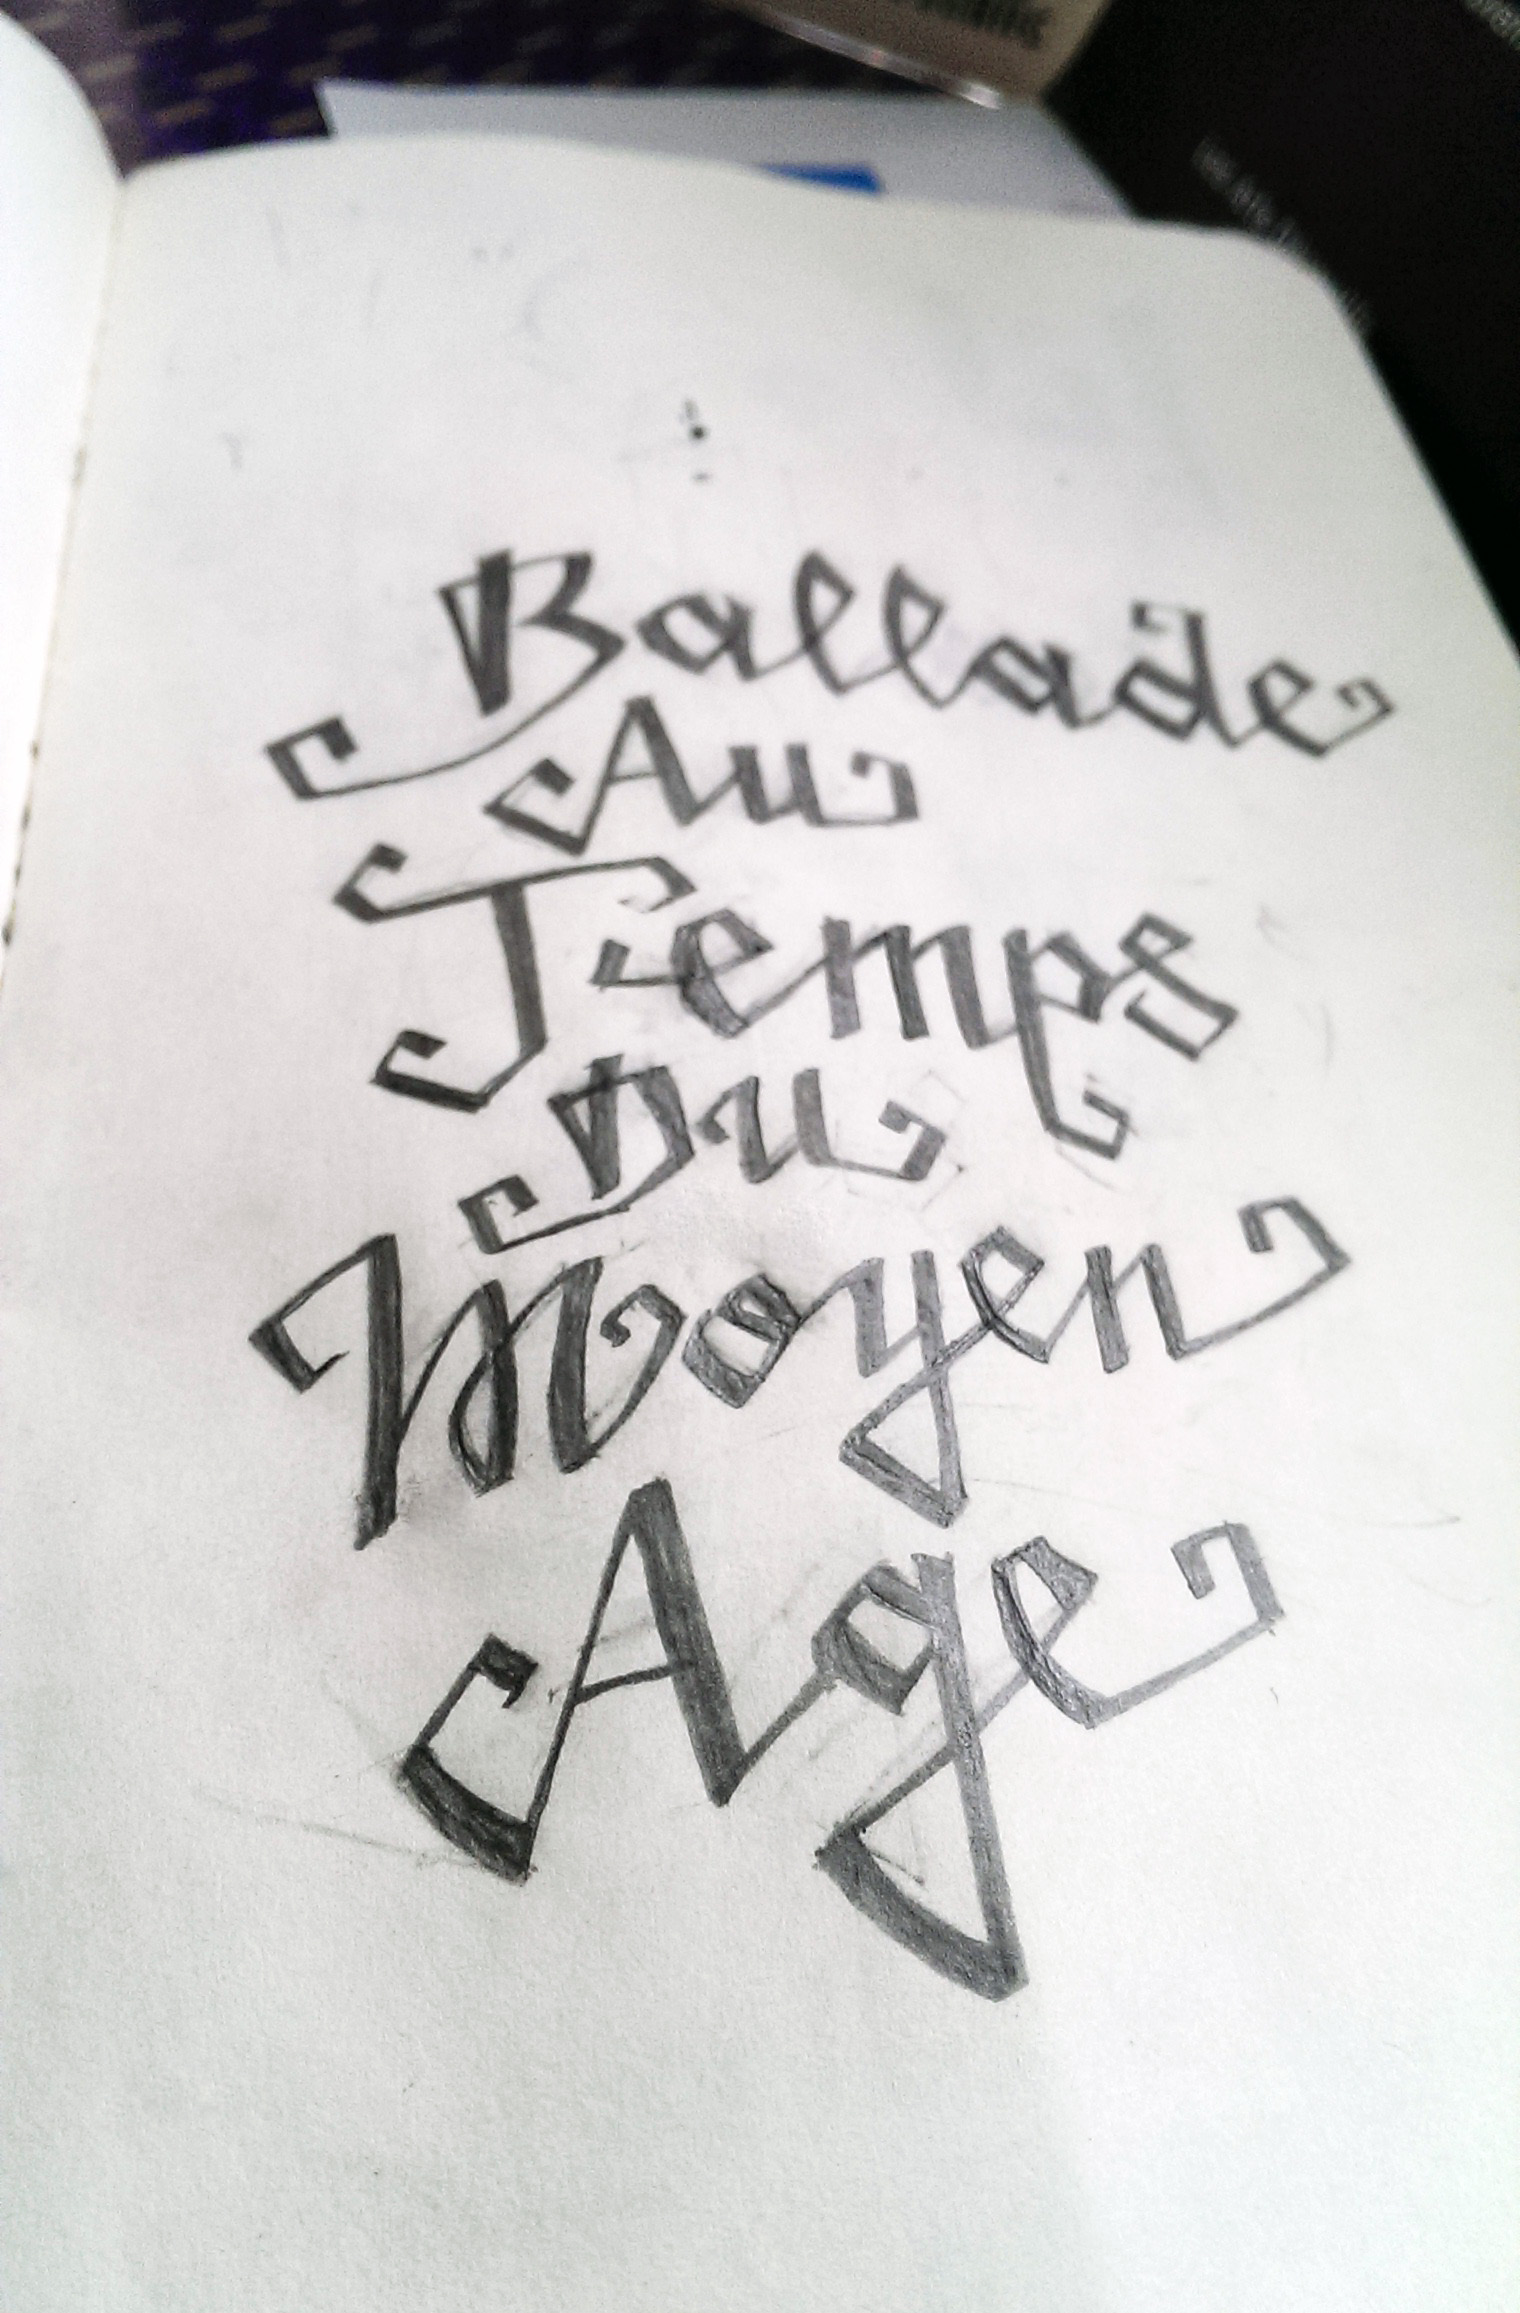 Ballade
Au
Temps
Du
Moyen
Age